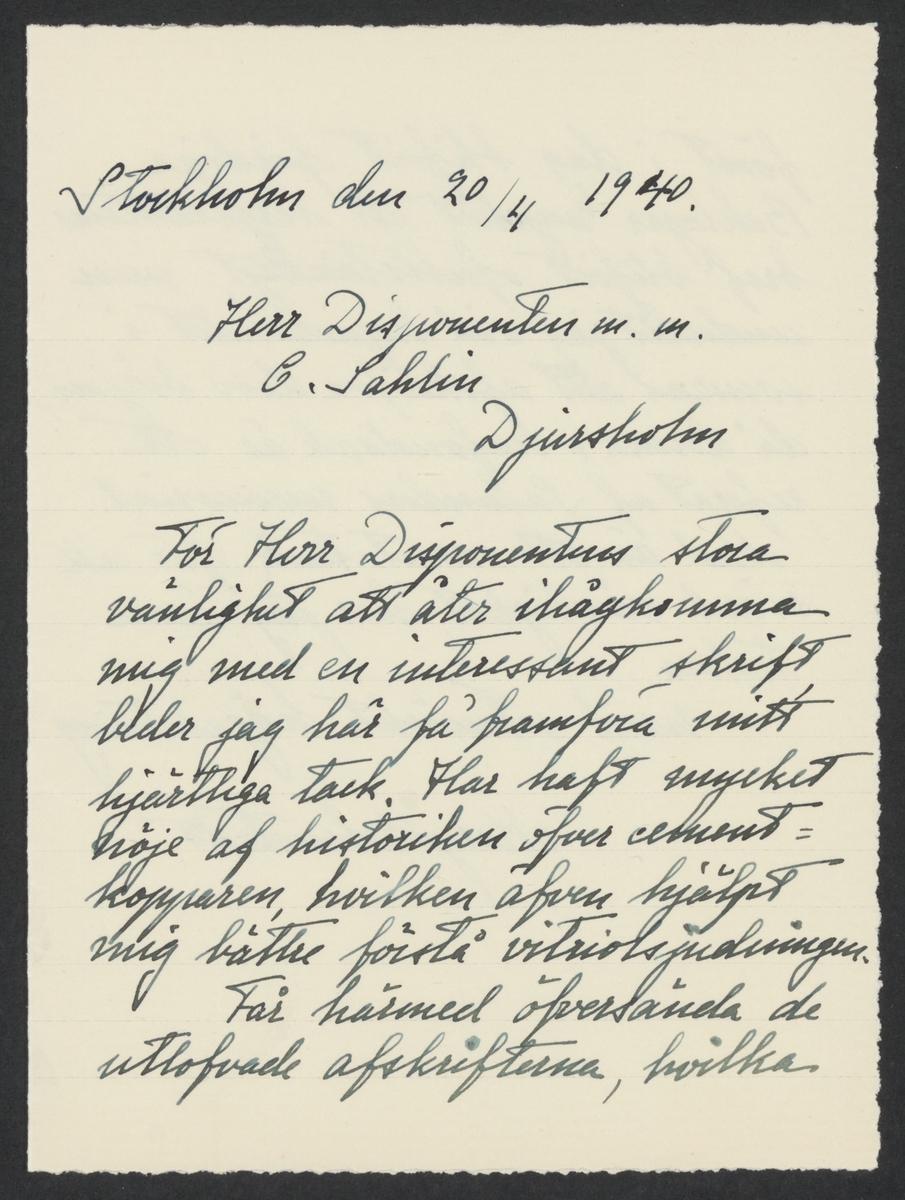 Stockholm den 20/4 1940.
Herr Disponenten m. m.
C. Sahlin
Djursholm
För Herr Disponentens stora
vänlighet att åter ihågkomma
mig med en interessant skrift,
beder jag här få framföra mitt
hjärtliga tack. Har haft mycket
nöje af historiken öfver cement=
kopparen, hvilken äfven hjälpt
mig bättre förstå vitriolsjudningen.
Får härmed öfversända de
utlofvade afskrifterna, hvilka